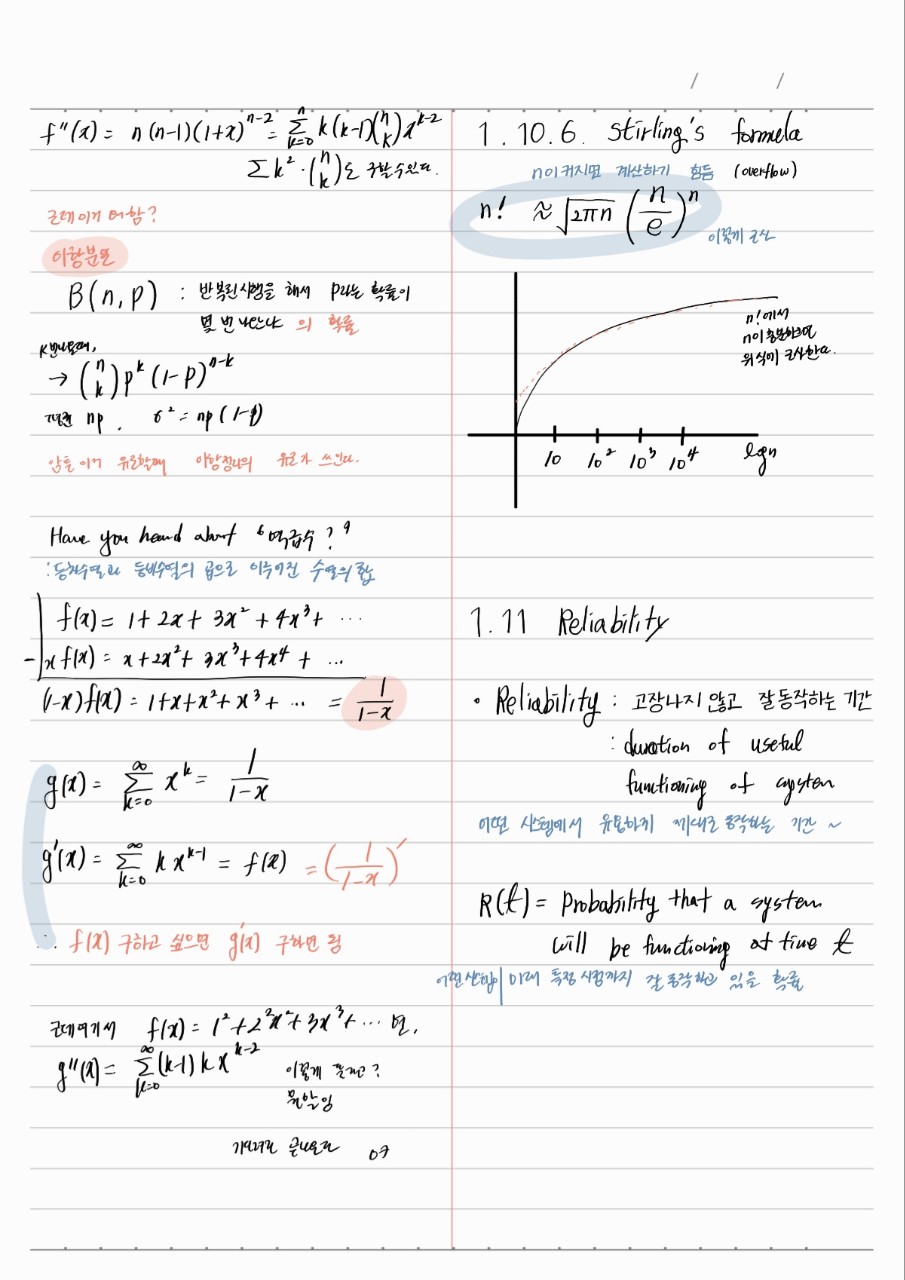 f''(x) = n(n-1)(1+x)^{n-2} = \sum_{k=0}^{n} k(k-1)\binom{n}{k}x^{k-2}
\sum k^2 \cdot \binom{n}{k}도 구할 수 있다.
근데 이거 왜 함?
이항분포
B(n, p) : 반복된 시행을 해서 p라는 확률이
몇 번 나왔나 의 확률
k번 나올때,
→ \binom{n}{k} p^k (1-p)^{n-k}
평균 np. σ² = np(1-p)
암튼 이거 유도할때 이항정리의 유도가 쓰인다.
Have you heard about '멱급수?'
: 등차수열과 등비수열의 곱으로 이루어진 수열의 합
f(x) = 1 + 2x + 3x² + 4x³ + ...
- xf(x) = x + 2x² + 3x³ + 4x⁴ + ...
(1-x)f(x) = 1 + x + x² + x³ + ... = \frac{1}{1-x}
g(x) = \sum_{k=0}^{∞} x^k = \frac{1}{1-x}
g'(x) = \sum_{k=0}^{∞} k x^{k-1} = f(x) = (\frac{1}{1-x})'
∴ f(x) 구하고 싶으면 g'(x) 구하면 됨
근데 여기서 f(x) = 1² + 2²x² + 3x³ + ... 면,
g''(x) = \sum_{k=0}^{∞} (k-1)k x^{k-2}
이렇게 풀려고?
뭔말임
1.10.6. Stirling's formela
n이 커지면 계산하기 힘듦 (overflow)
n! ≈ \sqrt{2πn} (\frac{n}{e})^n
이렇게 근사
n!에서
n이 충분하면
위식에 근사한다.
10 10² 10³ 10⁴ logn
1.11 Reliability
• Reliability : 고장나지 않고 잘 동작하는 기간
: duration of useful
functioning of system
어떤 시스템에서 유용하게 제대로 동작하는 기간 ~
R(t) = Probability that a system
will be functioning at time t
어떤 시스템이 미래 특정 시점까지 잘 동작하고 있을 확률